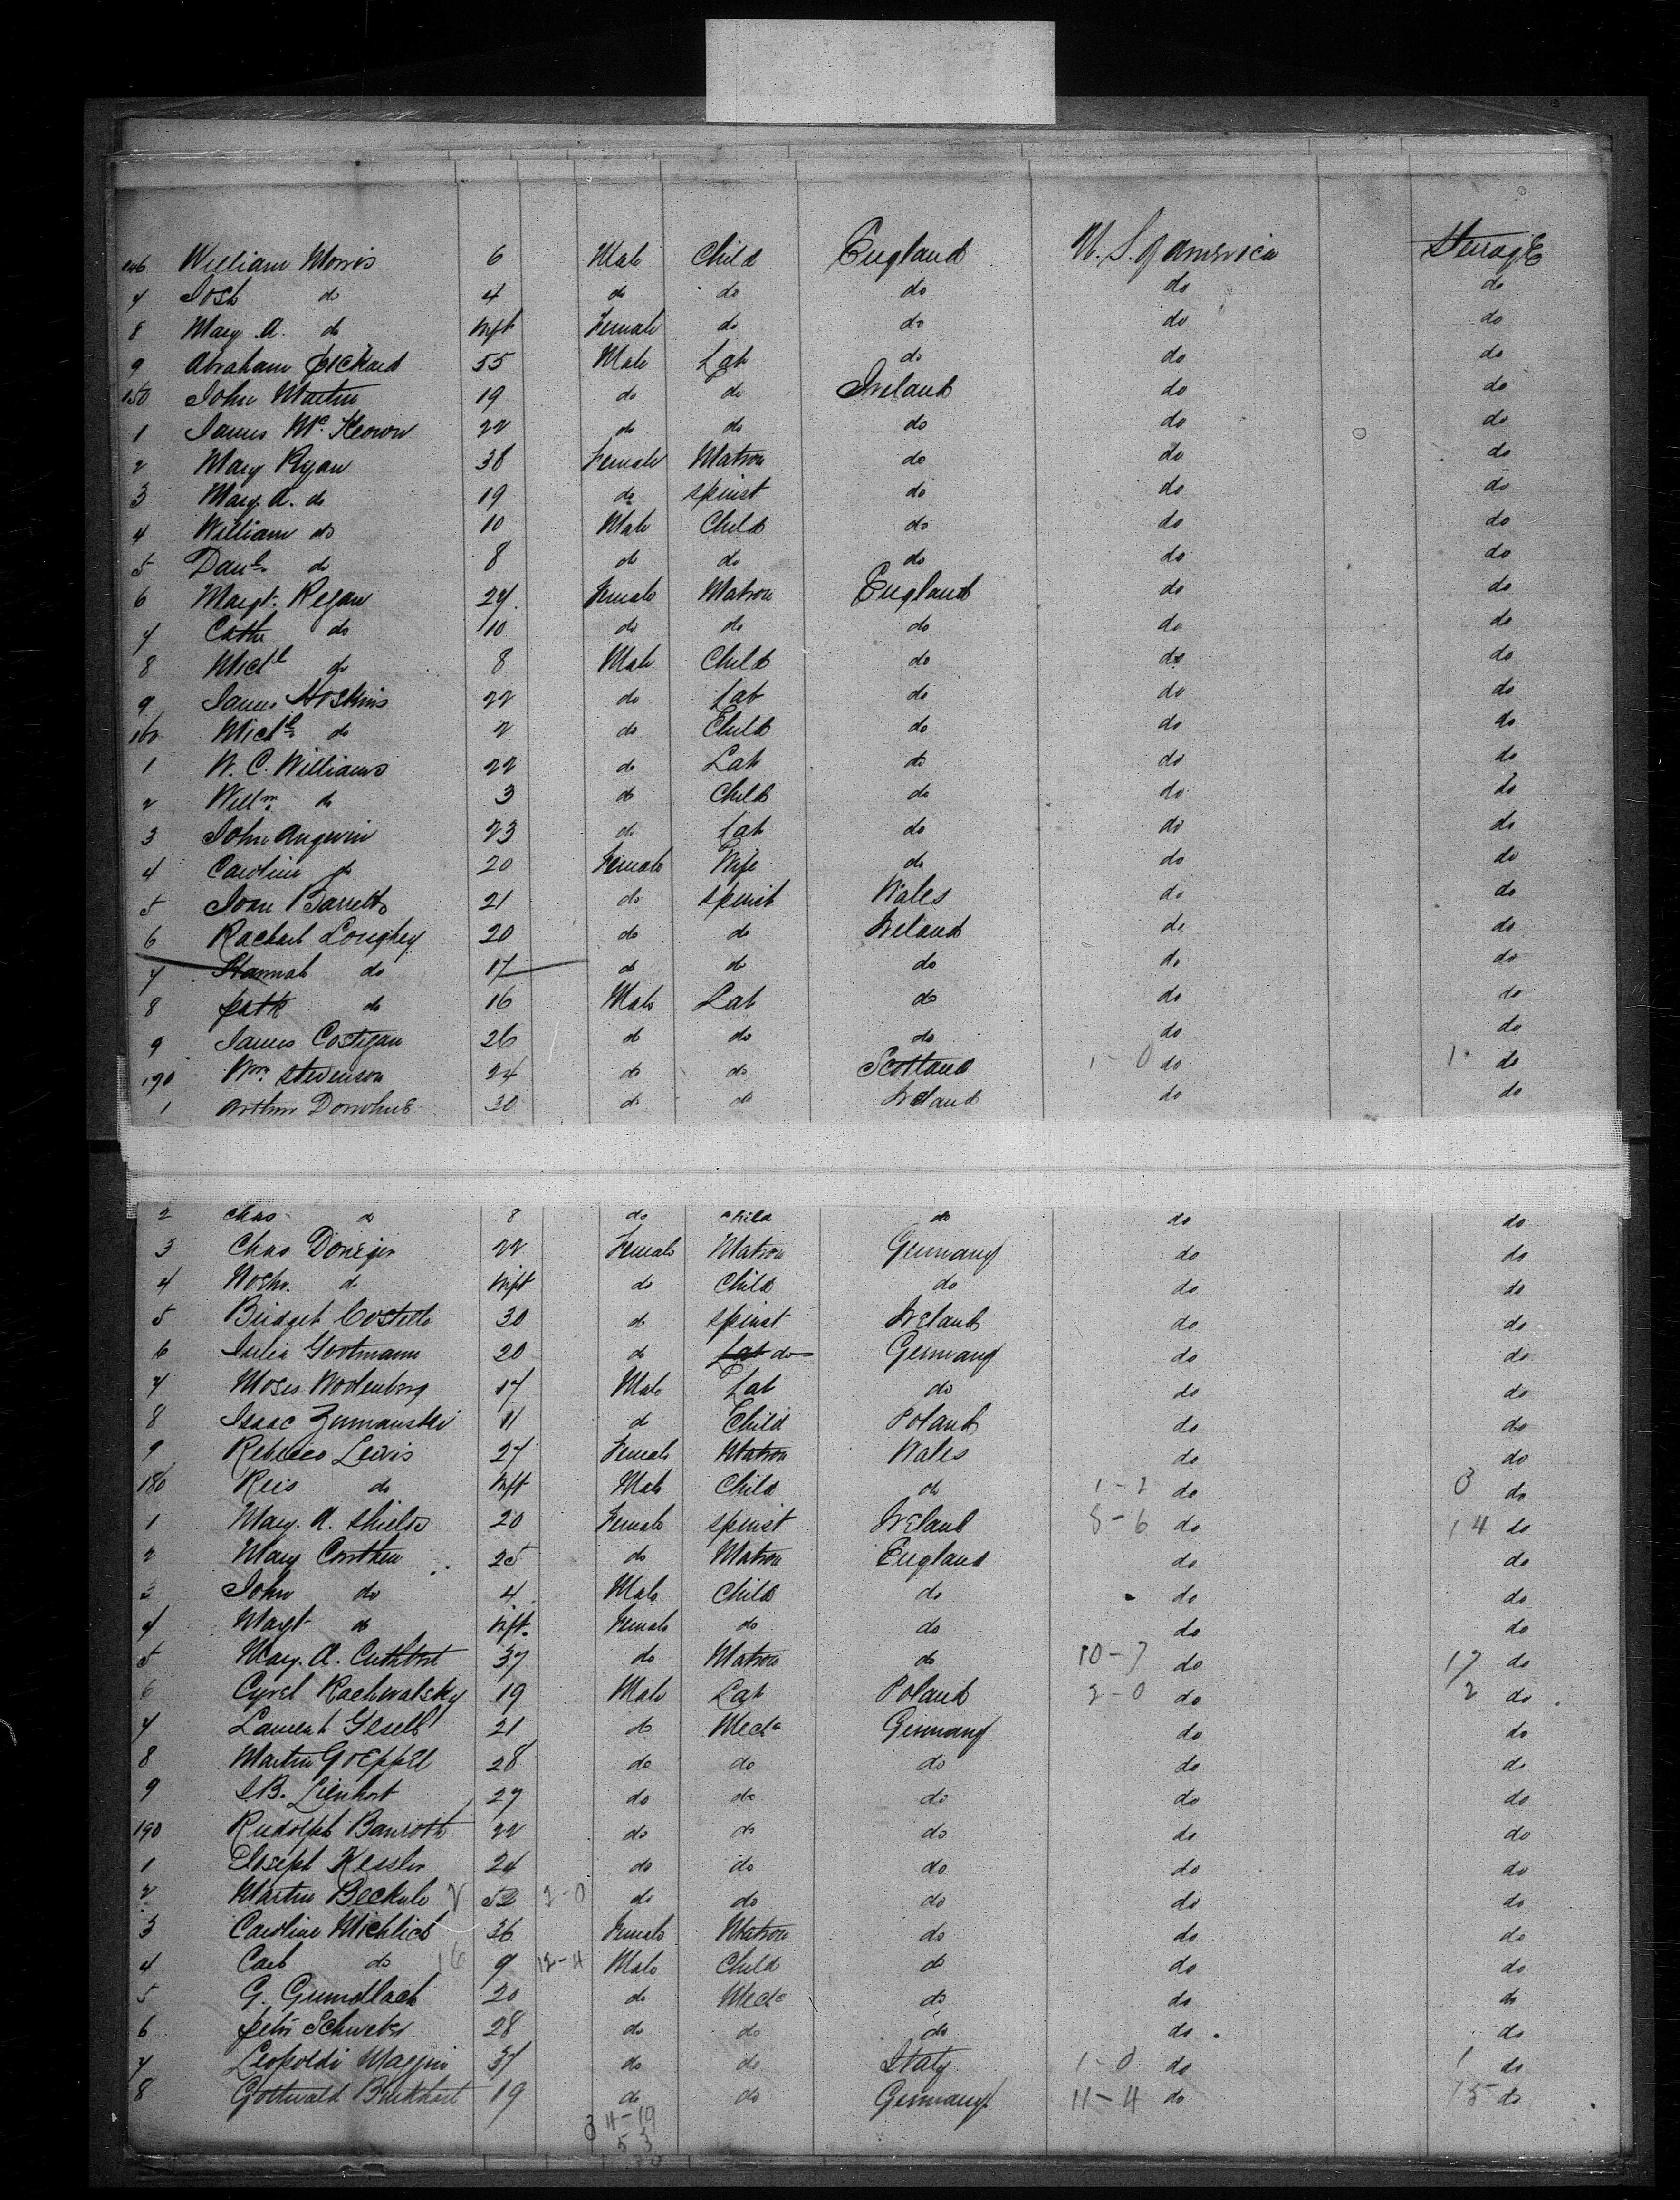 146 William Morris 6 Male Child England U. S. of America Steerage
7 Josh do 4 do do do do do
8 Mary A. do Inft Female do do do do
9 Abraham Pickard 55 Male Lab do do do
150 John Martin 19 do do Ireland do do
1 James McKeown 22 do do do do do
2 Mary Ryan 38 Female Matron do do do
3 Mary A. do 19 do spinst do do do
4 William do 10 Male Child do do do
5 Danl do 8 do do do do do
6 Margt. Regan 24 Female Matron England do do
7 Cathe do 10 do do do do do
8 Michl do 8 Male Child do do do
9 James Hoskins 22 do Lab do do do
160 Michl do 2 do Child do do do
1 W. C. Williams 22 do Lab do do do
2 Willm do 3 do Child do do do
3 John Angwin 23 do Lab do do do
4 Caroline do 20 Female Wife do do do
5 Joan Barrett 21 do spinst Wales do do
6 Rachael Loughey 20 do do Ireland do do
7 Hannah do 17 do do do do do
8 patk do 16 Male Lab do do do
9 James Costigan 26 do do do do do
170 Wm. Stevenson 24 do do Scotland 1-0 do 1 do
1 Arthur Donohue 30 do do Ireland do do
2 Chas do 8 do child do do do
3 Chas Doneger 22 Female Matron Germany do do
4 do Inft do Child do do do
5 Bridget Costello 30 do spinst Ireland do do
6 Julia Gootmann 20 do Lab do Germany do do
7 Moses 17 Male Lab do do do
8 Isaac Zumanski 11 do Child Poland do do
9 Rebecca Lewis 27 Female Matron Wales do do
180 Rees do Inft Male Child do 1-2 do 3 do
1 Mary. A. Shields 20 Female spinst Ireland 8-6 do 14 do
2 Mary 25 do Matron England do do
3 John do 4 Male Child do do do
4 Margt do Inft. Female do do do do
5 Mary. A. Cuthbert 37 do Matron do 10-7 do 17 do
6 Rachwalsky 19 Male Lab Poland 2-0 do 2 do
7 21 do Mech Germany do do
8 Martin Goeppel 28 do do do do do
9 J.B. Lienhart 27 do do do do do
190 Rudolph Banroth 22 do do do do do
1 Joseph Kessler 24 do do do do do
2 Martin 2 52 2-0 do do do do do
3 Caroline Michlich 36 Female Matron do do do
4 Carl do 16 9 12-4 Male Child do do do
5 G. Gundlach 20 do Mech do do do
6 peter Schweber 28 do do do do do
7 Leopoldi Maggini 37 do do Italy 1-0 do 1 do
8 Gottwald Burkhart 19 do do Germany 11-4 do 15 do
34-19
5 3